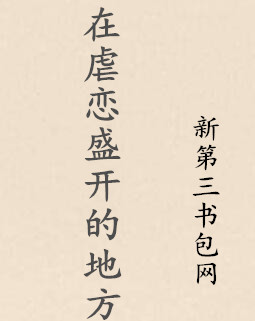 在虐恋盛开的地方
新第三书包网